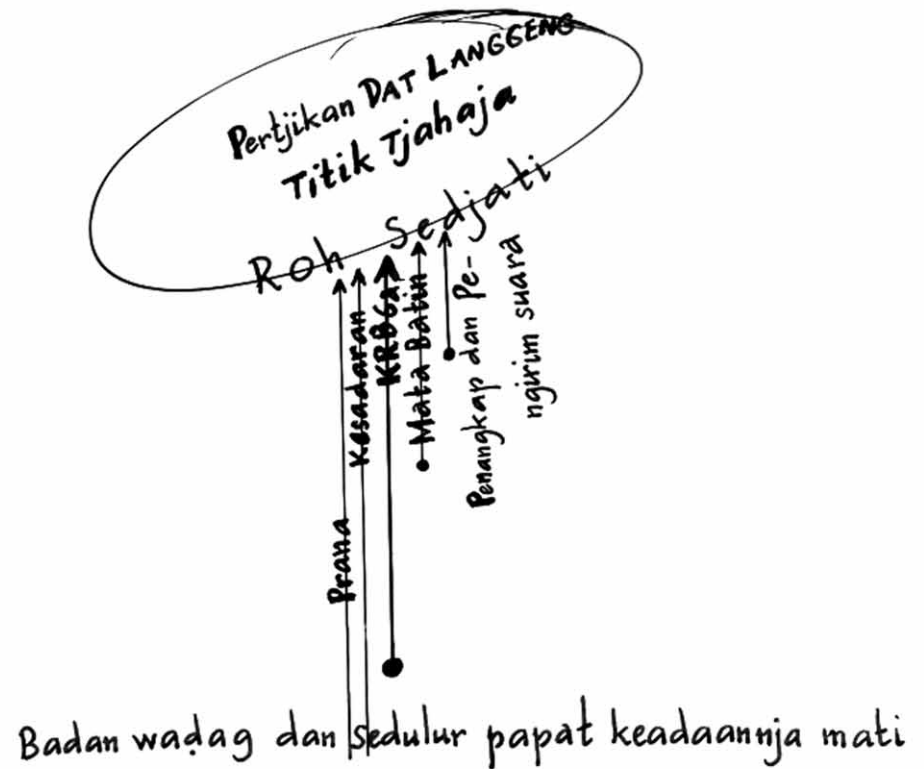 Pertjikan DAT LANGGENG
Titik Tjahaja
Roh Sedjati
Prana
Kesadaran
Mata Batin
Penangkap dan Pe-
ngirim suara
Badan waḍag dan Sedulur papat keadaannja mati